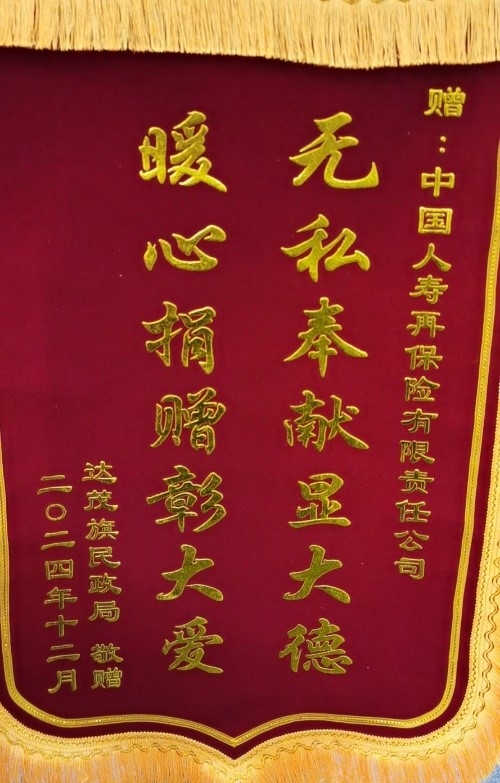 赠：中国人寿再保险有限责任公司
无私奉献显大德
暖心捐赠彰大爱
达茂旗民政局 敬赠
二〇二四年十二月